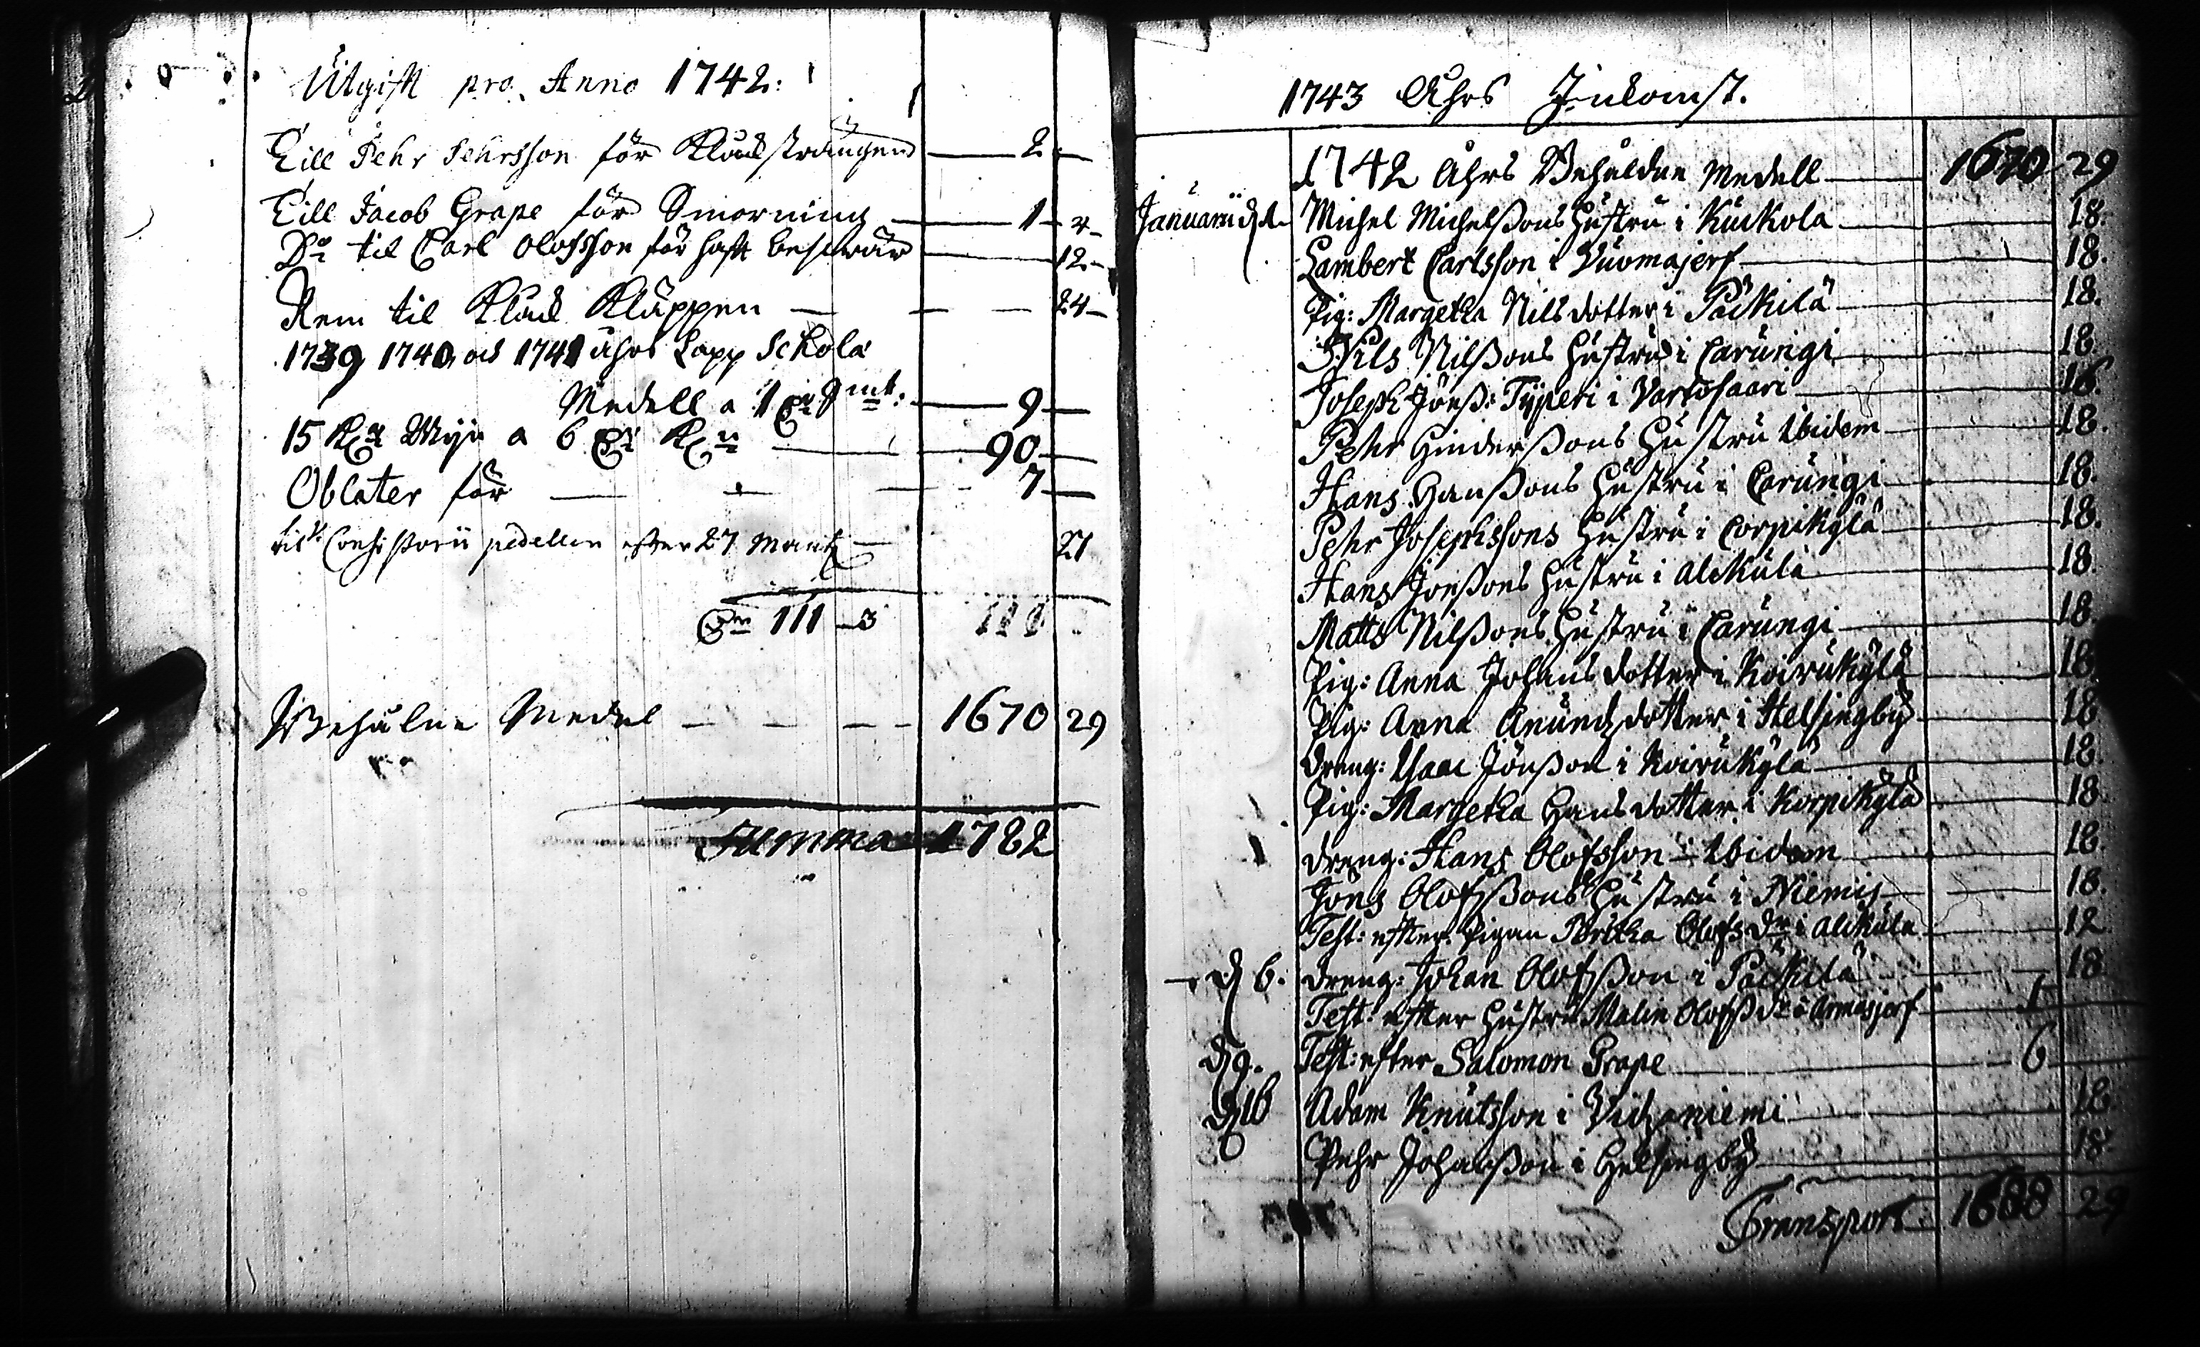 Utgift pro Anno 1742:
Till Pehr Pehrsson för Klockstrången 2
Till Jacob Grape för Smörning 1 4
Do til Carl Olofsson för haft besswär 12
Rem til Klock Kläppen 24
1739 1740 och 1741 åhrs Lapp Schola
Medell a 9 mk: 9
15 Wijn a 6 90
Oblater för 7
til Consistorii pedellen efter 27 Martz 21
Sm 111 3 111
Behålne Medel 1670 29
Summa 1782
1743 Åhrs Inkomst.
1742 Åhrs Behåldne Medell 1670 29
Januarii d. Michel Michelßons Hustru i Kuckola 18.
Lambert Carlsson i Vuomajerf 18.
Pig: Margetha Nilsdotter i Päckilä 18.
Nils Nilßons Hustru i Carungi 18.
Joseph Jönß: Typeri i 16.
Pehr Hinderßons Hustru Ibidem 18.
Hans Hanßons Hustru i Carungi 18.
Pehr Josephssons Hustru i Corpikylä 18.
Hans Jönßons Hustru i Alckula 18
Matts Nilßons Hustru i Carungi 18
Pig: Anna Johansdotter i Koirukylä 18
Pig: Anna Anundzdotter i Helsingby 18
Dreng: Isaac Jönßon i Koirukylä 18.
Pig: Margetha Hansdotter i Korpikylä 18
Dreng: Hans Olofsson Ibidem 18.
Jöns Olofßons Hustru i Niemis 18.
Test: efter Pigan Olofs Dr i Alckula 12
d 6. Dreng: Johan Olofßon i Päckilä 18
Test: efter Hustru Malin Olofß Dr i Armasjerf 1
d 9. Test: efter Salomon Grape 6
d 16 Adam Knutsson i 18.
Pehr Johanßon i Helsingby 18.
Transport 1688 29